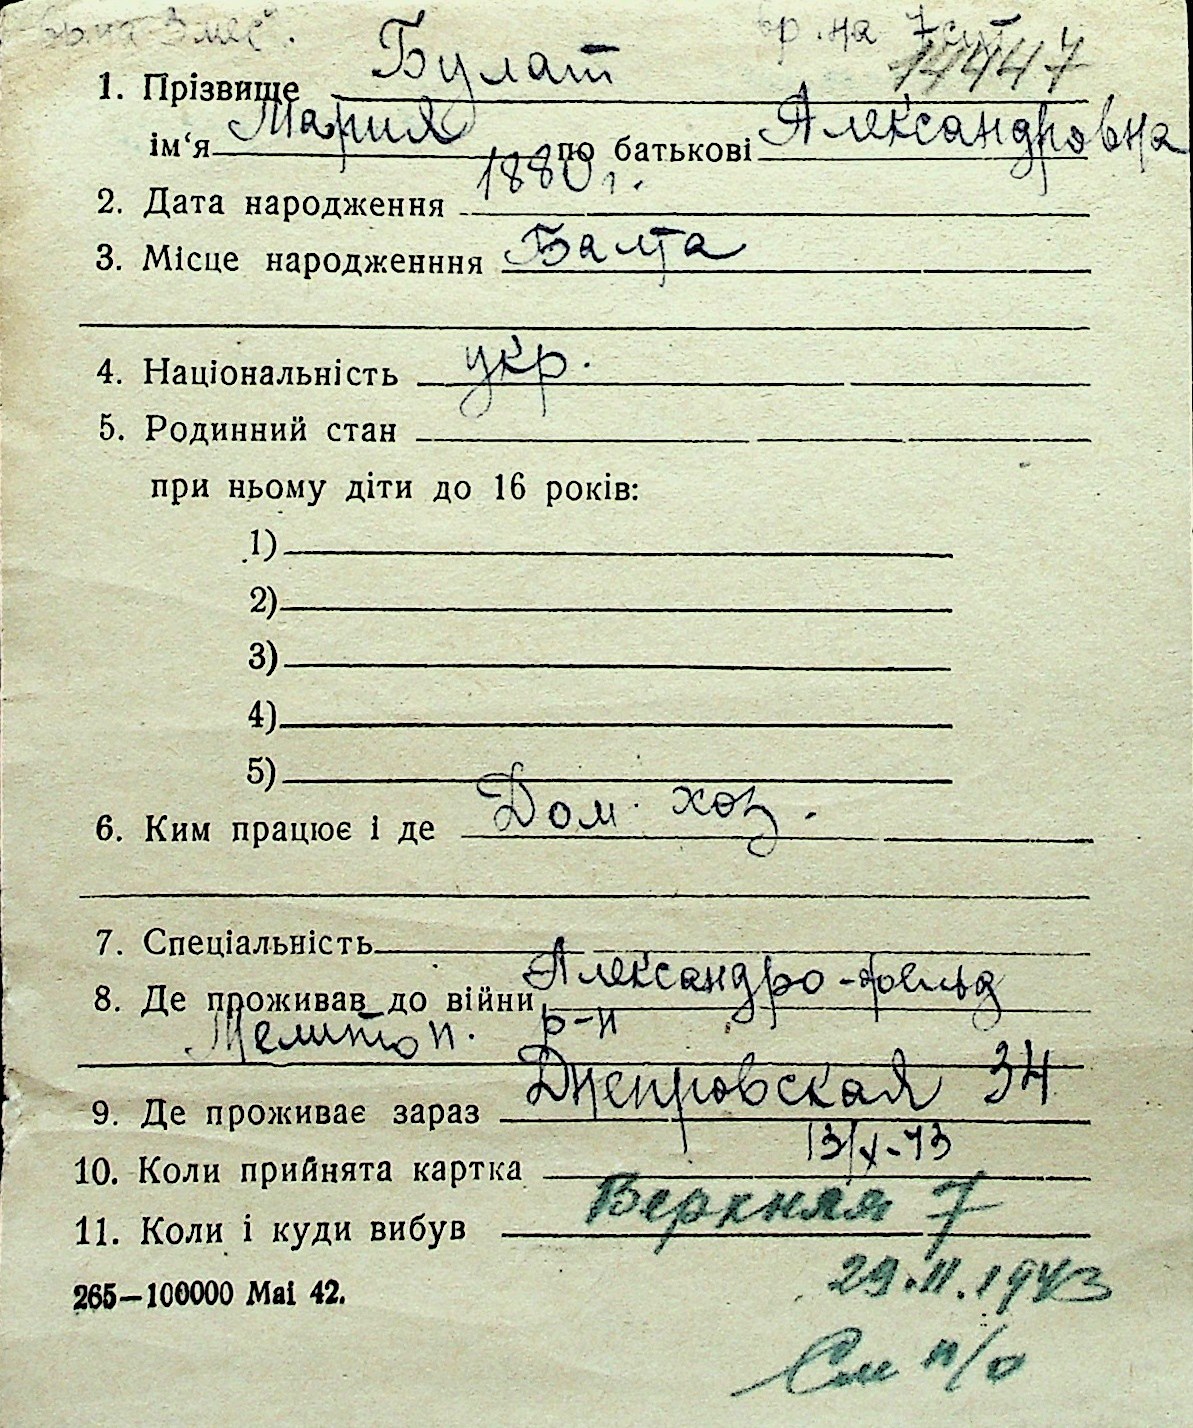 вр. на 3 мес. вр. на 7 сут
14447
1. Прізвище Булат
ім‘я Мария по батькові Александровна
2. Дата народження 1880 г.
3. Місце народженння Балта
4. Національність укр.
5. Родинний стан
при ньому діти до 16 років:
1)
2)
3)
4)
5)
6. Ким працює і де Дом. хоз.
7. Спеціальність
8. Де проживав до війни Александро-фельд
Мелитоп. р-н
9. Де проживає зараз Днепровская 34
10. Коли прийнята картка 13/X-43
11. Коли і куди вибув Верхняя 7
265—100000 Mai 42. 29.11.1943
См н/о